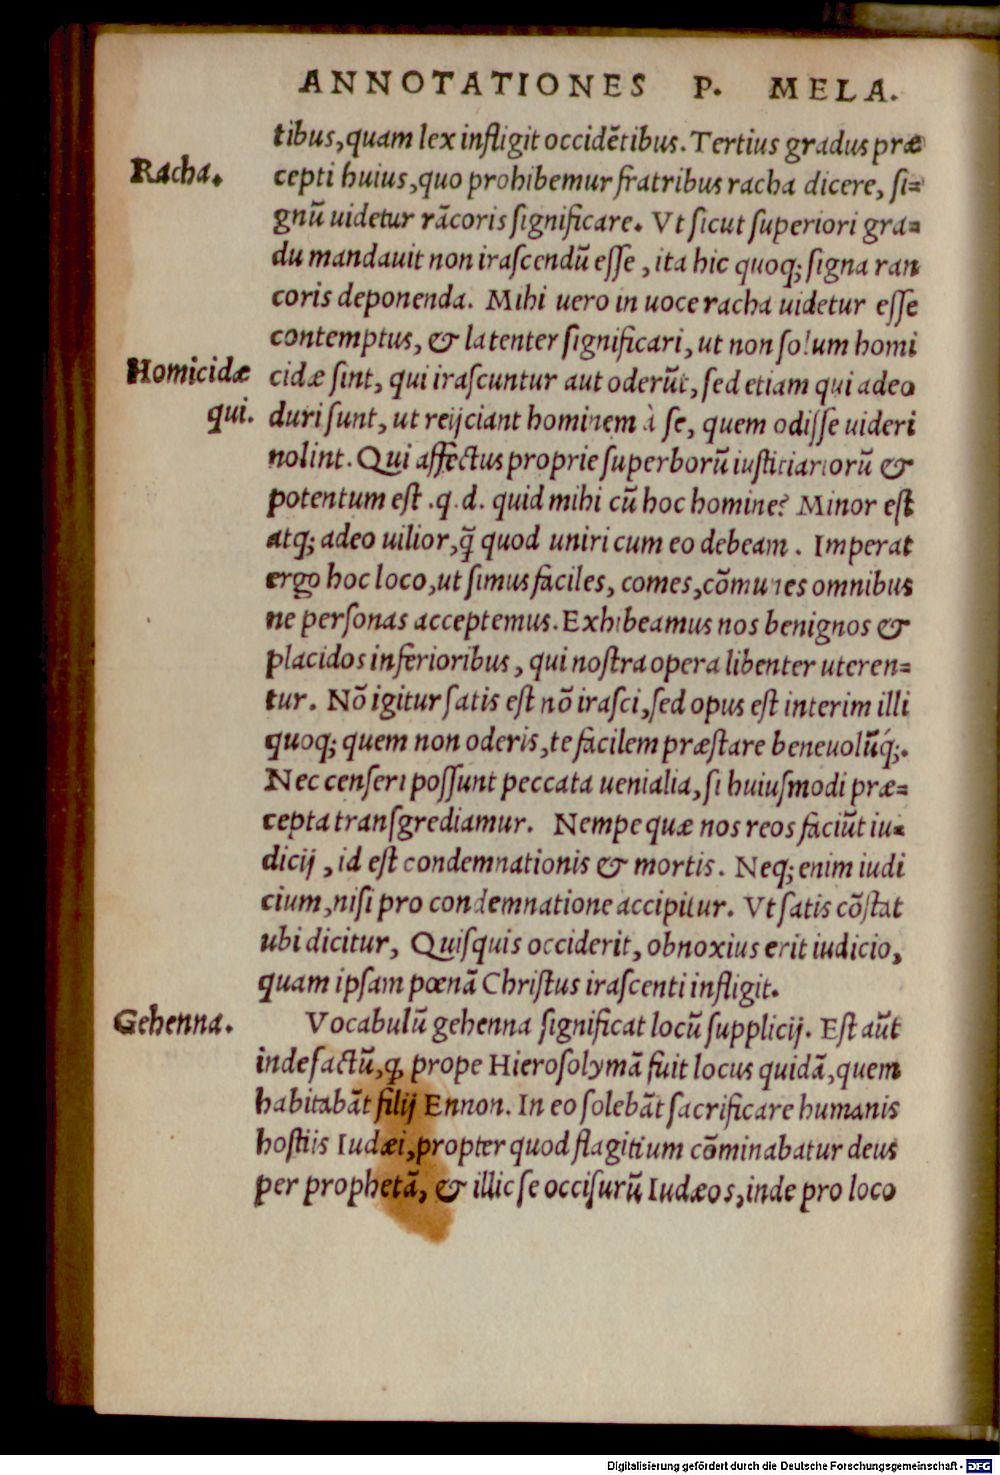 ANNOTATIONES P. MELA.
tibus,quam lex infligit occidētibus. Tertius gradus præ
Racha.
cepti huius,quo prohibemur fratribus racha dicere, si=
gnū uidetur rācoris significare. Vt sicut superiori gra=
du mandauit non irascendū esse, ita hic quoq; signa ran
coris deponenda. Mihi uero in uoce racha uidetur esse
contemptus, & latenter significari, ut non solum homi
Homicidæ
cidæ sint, qui irascuntur aut oderūt, sed etiam qui adeo
qui.
duri sunt, ut reijciant hominem à se, quem odisse uideri
nolint. Qui affectus proprie superborū iustitiariorū &
potentum est .q.d. quid mihi cū hoc homine? Minor est
atq; adeo uilior,q̄ quod uniri cum eo debeam. Imperat
ergo hoc loco,ut simus faciles, comes,cōmunes omnibus
ne personas acceptemus. Exhibeamus nos benignos &
placidos inferioribus, qui nostra opera libenter uteren=
tur. Nō igitur satis est nō irasci,sed opus est interim illi
quoq; quem non oderis,te facilem præstare beneuolūq́;.
Nec censeri possunt peccata uenialia, si huiusmodi præ=
cepta transgrediamur. Nempe quæ nos reos faciūt iu=
dicij, id est condemnationis & mortis. Neq; enim iudi
cium,nisi pro condemnatione accipitur. Vt satis cōstat
ubi dicitur, Quisquis occiderit, obnoxius erit iudicio,
quam ipsam pœnā Christus irascenti infligit.
Gehenna.
Vocabulū gehenna significat locū supplicij. Est aūt
inde factū,ꝙ prope Hierosolymā fuit locus quidā,quem
habitabāt filij Ennon. In eo solebāt sacrificare humanis
hostiis Iudæi,propter quod flagitium cōminabatur deus
per prophetā, & illic se occisurū Iudæos,inde pro loco
Digitalisierung gefördert durch die Deutsche Forschungsgemeinschaft - DFG